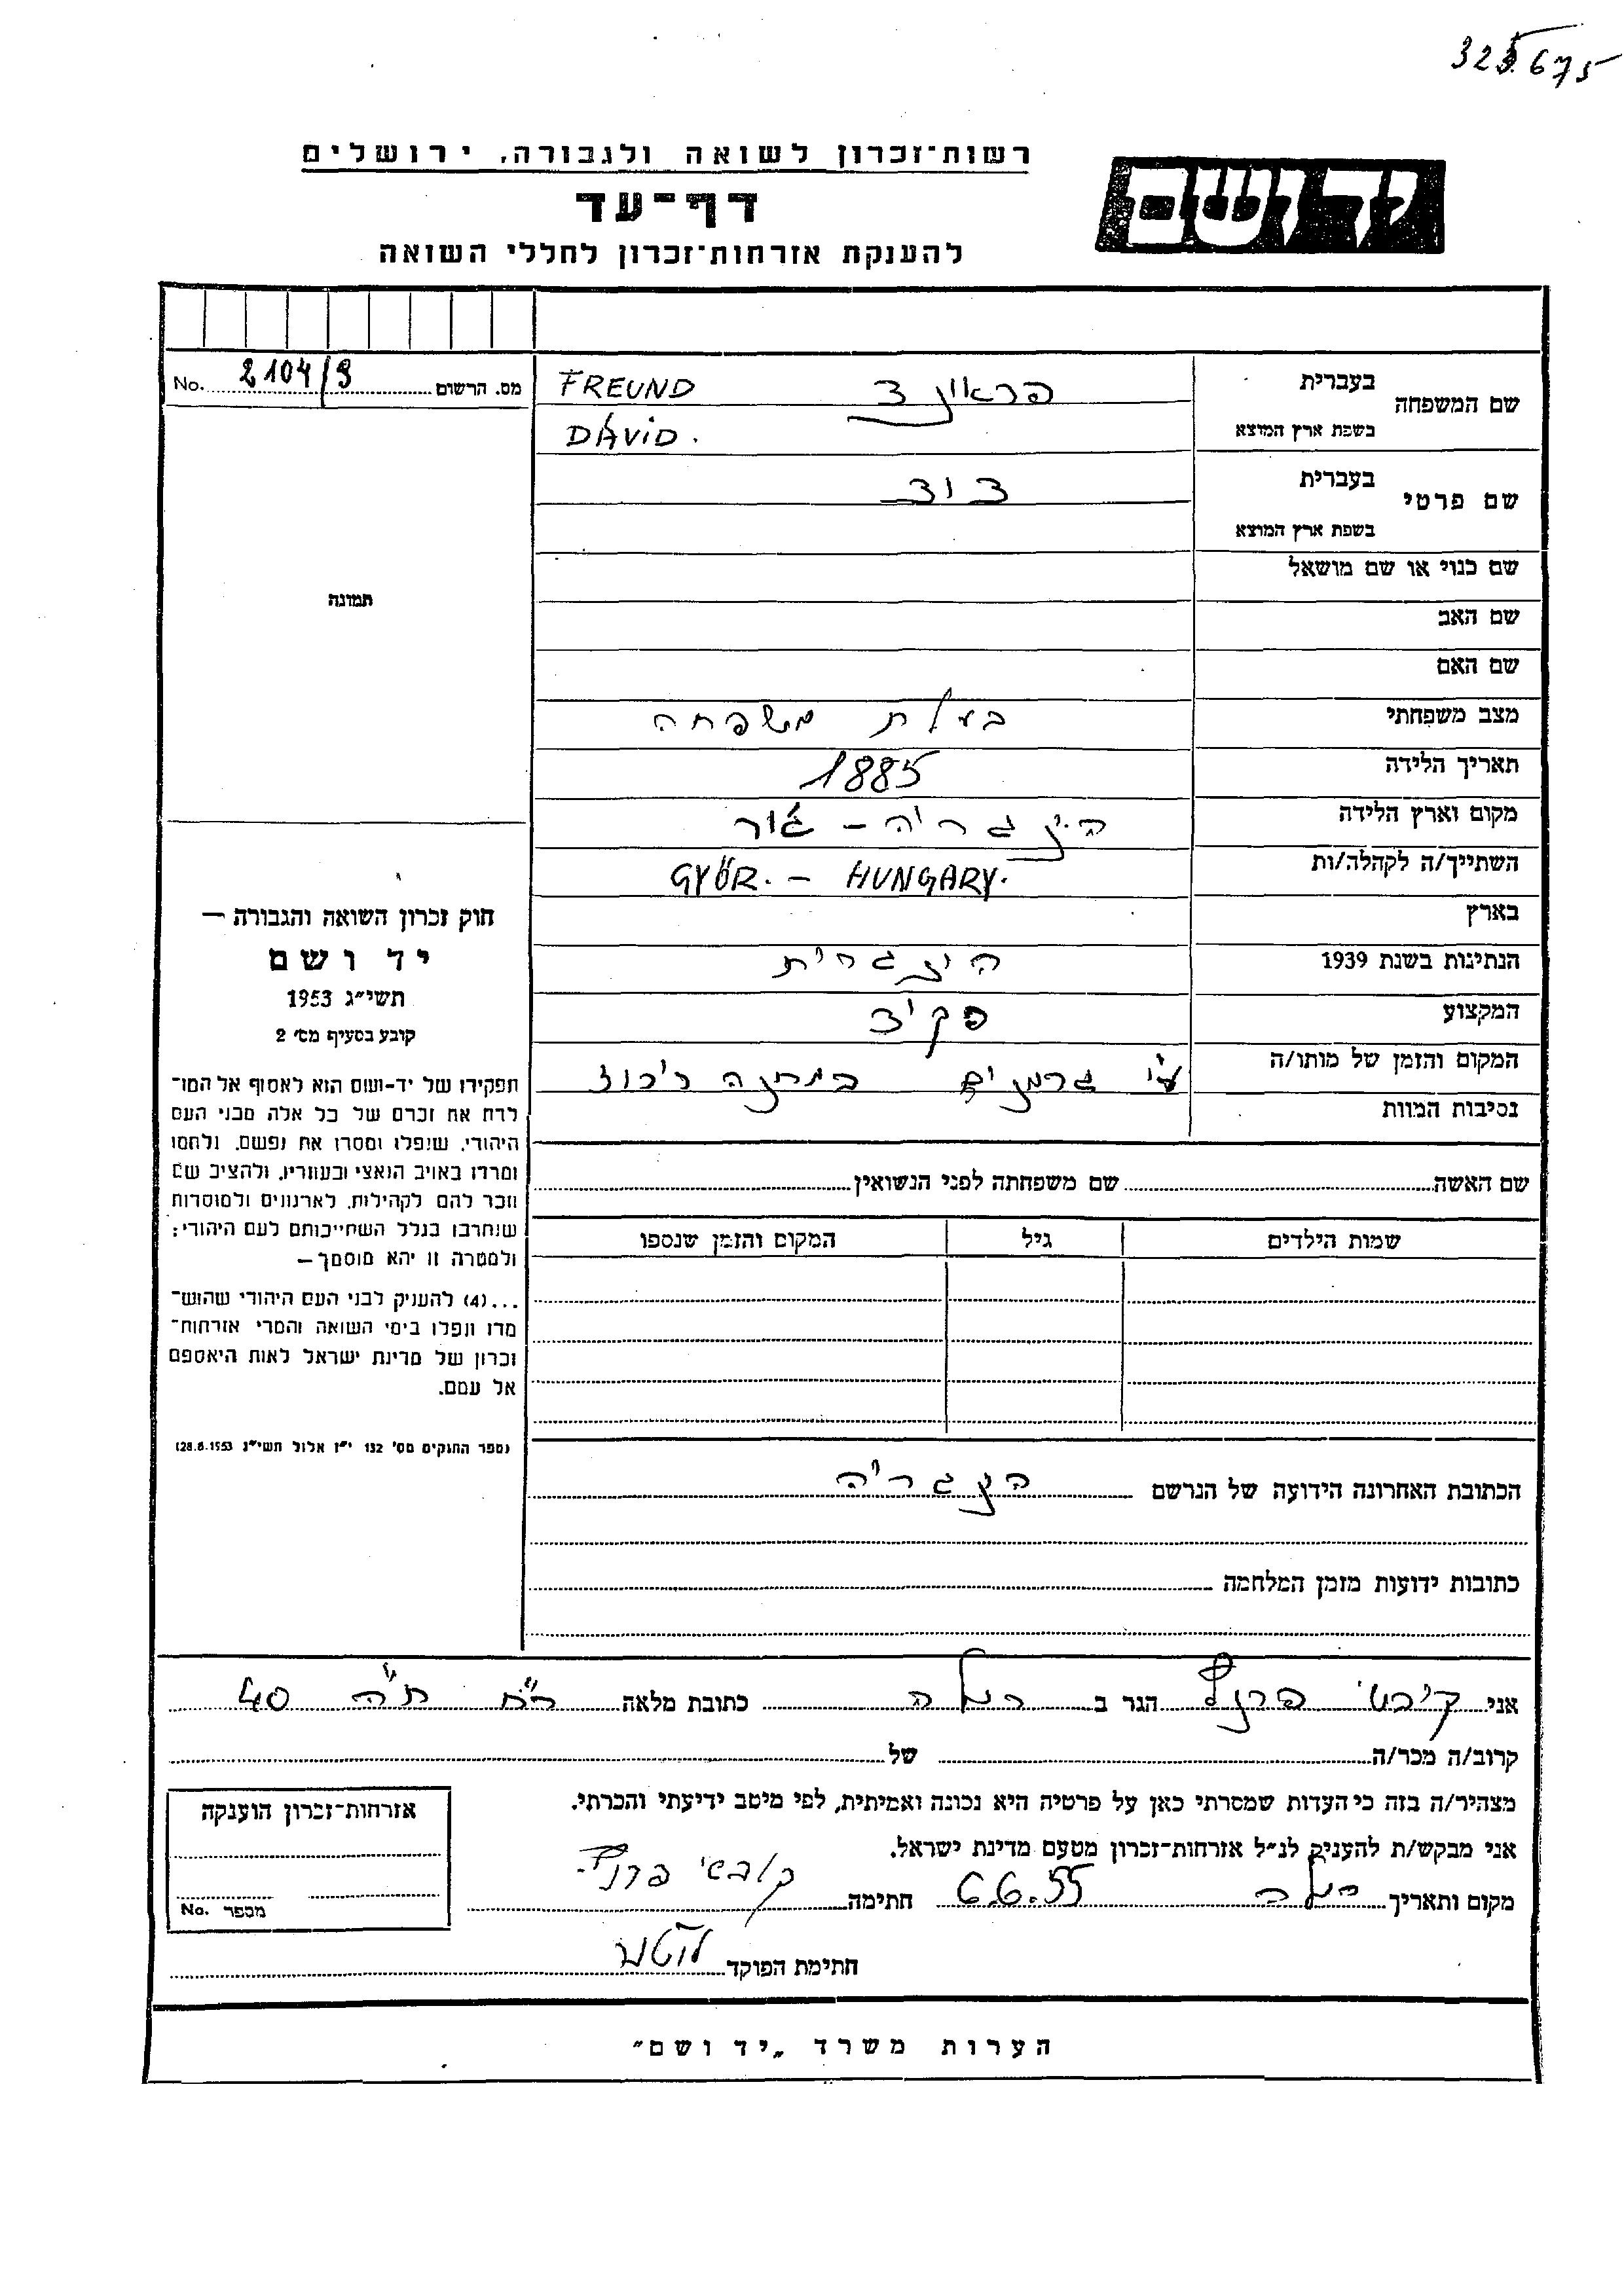 325675
רשות־זכרון לשואה ולגבורה, ירושלים
ידושם
דף־עד
להענקת אזרחות־זכרון לחללי השואה
מס. הרשום 2104/9 No.
שם המשפחה בעברית פראונד FREUND
בשפת ארץ המוצא DÁVID.
שם פרטי בעברית דוד
בשפת ארץ המוצא
שם כנוי או שם מושאל
תמונה
שם האב
שם האם
מצב משפחתי בעלת משפחה
תאריך הלידה 1885
מקום וארץ הלידה הונגריה – ג'ור
השתייך/ה לקהלה/ות GYÖR. – HUNGARY.
בארץ
הנתינות בשנת 1939 הונגרית
המקצוע פקיד
המקום והזמן של מותו/ה ע"י גרמנים במחנה ריכוז
נסיבות המוות
חוק זכרון השואה והגבורה —
יד ושם
תשי״ג 1953
קובע בסעיף מס׳ 2
תפקידו של יד-ושם הוא לאסוף אל המו־
לדת את זכרם של כל אלה מבני העם
היהודי, שנפלו ומסרו את נפשם, נלחמו
ומרדו באויב הנאצי ובעוזריו, ולהציב שם
וזכר להם לקהילות, לארגונים ולמוסדות
שנחרבו בגלל השתייכותם לעם היהודי;
ולמטרה זו יהא מוסמך —
...(4) להעניק לבני העם היהודי שהוש־
מדו ונפלו בימי השואה והמרי אזרחות־
זכרון של מדינת ישראל לאות היאספם
אל עמם.
(ספר החוקים מס׳ 132 י״ז אלול תשי״ג 28.8.1953)
שם האשה שם משפחתה לפני הנשואין
שמות הילדים גיל המקום והזמן שנספו
הכתובת האחרונה הידועה של הנרשם הונגריה
כתובות ידועות מזמן המלחמה
אני הגר ב רמלה כתובת מלאה 40
קרוב/ה מכר/ה של
מצהיר/ה בזה כי העדות שמסרתי כאן על פרטיה היא נכונה ואמיתית, לפי מיטב ידיעתי והכרתי.
אני מבקש/ת להעניק לנ״ל אזרחות־זכרון מטעם מדינת ישראל.
מקום ותאריך רמלה 6.6.55 חתימה
חתימת הפוקד
אזרחות־זכרון הוענקה
מספר No.
הערות משרד „יד ושם״